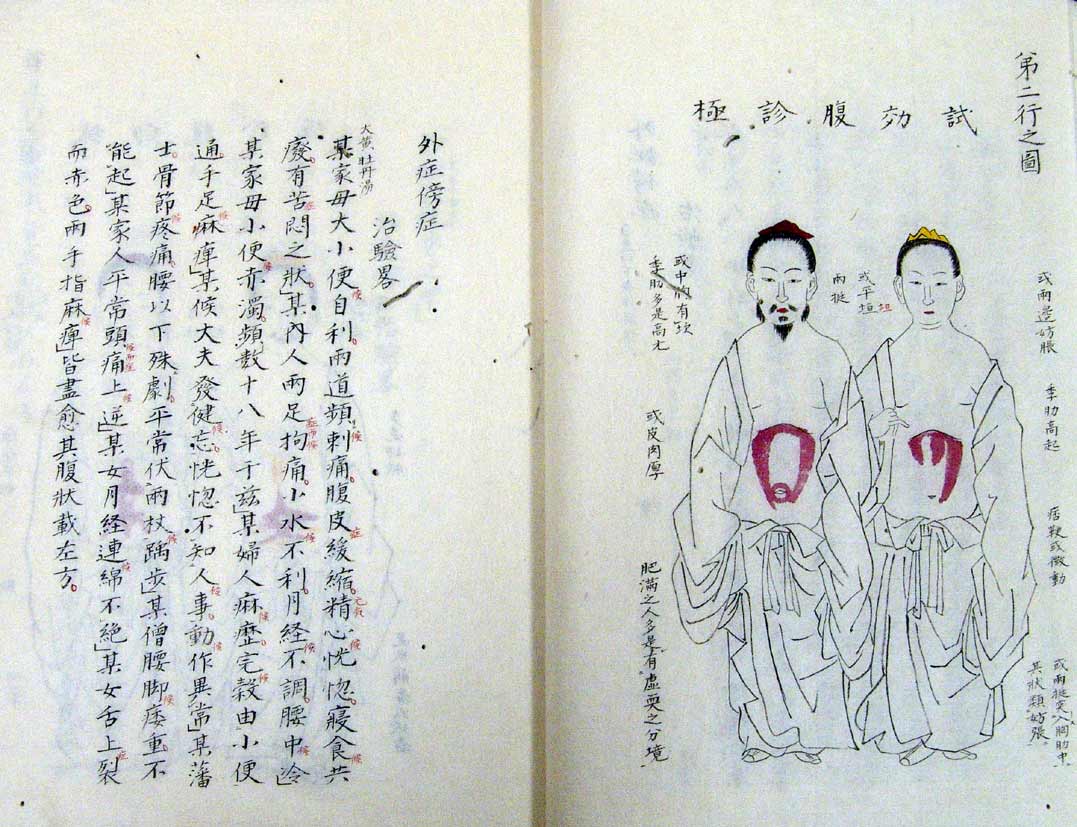 第二行之圖
試効腹診極
或兩邊妨脹
季肋高起
痞鞕或微動
或兩挺突入胸肋中
其狀類妨張。
或平垣
垣
兩挺
或中
有
季肋多是高
或皮肉厚
肥滿之人多是有虛耎之分境
外症傍症
治驗畧
大黃牡丹湯
某家母大小便自利。兩道頻刺痛。腹皮緩縮。精心恍惚。寢食共
廢。有苦悶之狀」某內人兩足拘痛。小水不利。月経不調。腰中冷」
某家母小便赤濁。頻数十八年于茲」某婦人麻痺。完穀由小便
通。手足麻痺」某候大夫發健忘。恍惚不知人事。動作異常」某藩
士。骨節疼痛。腰以下殊劇。平常伏兩杖踽步」某僧腰脚痿重。不
能起」某家人平常頭痛上逆」某女月経連綿不絕」某女舌上裂
而赤色。兩手指麻痺」皆盡愈其腹狀載左方。